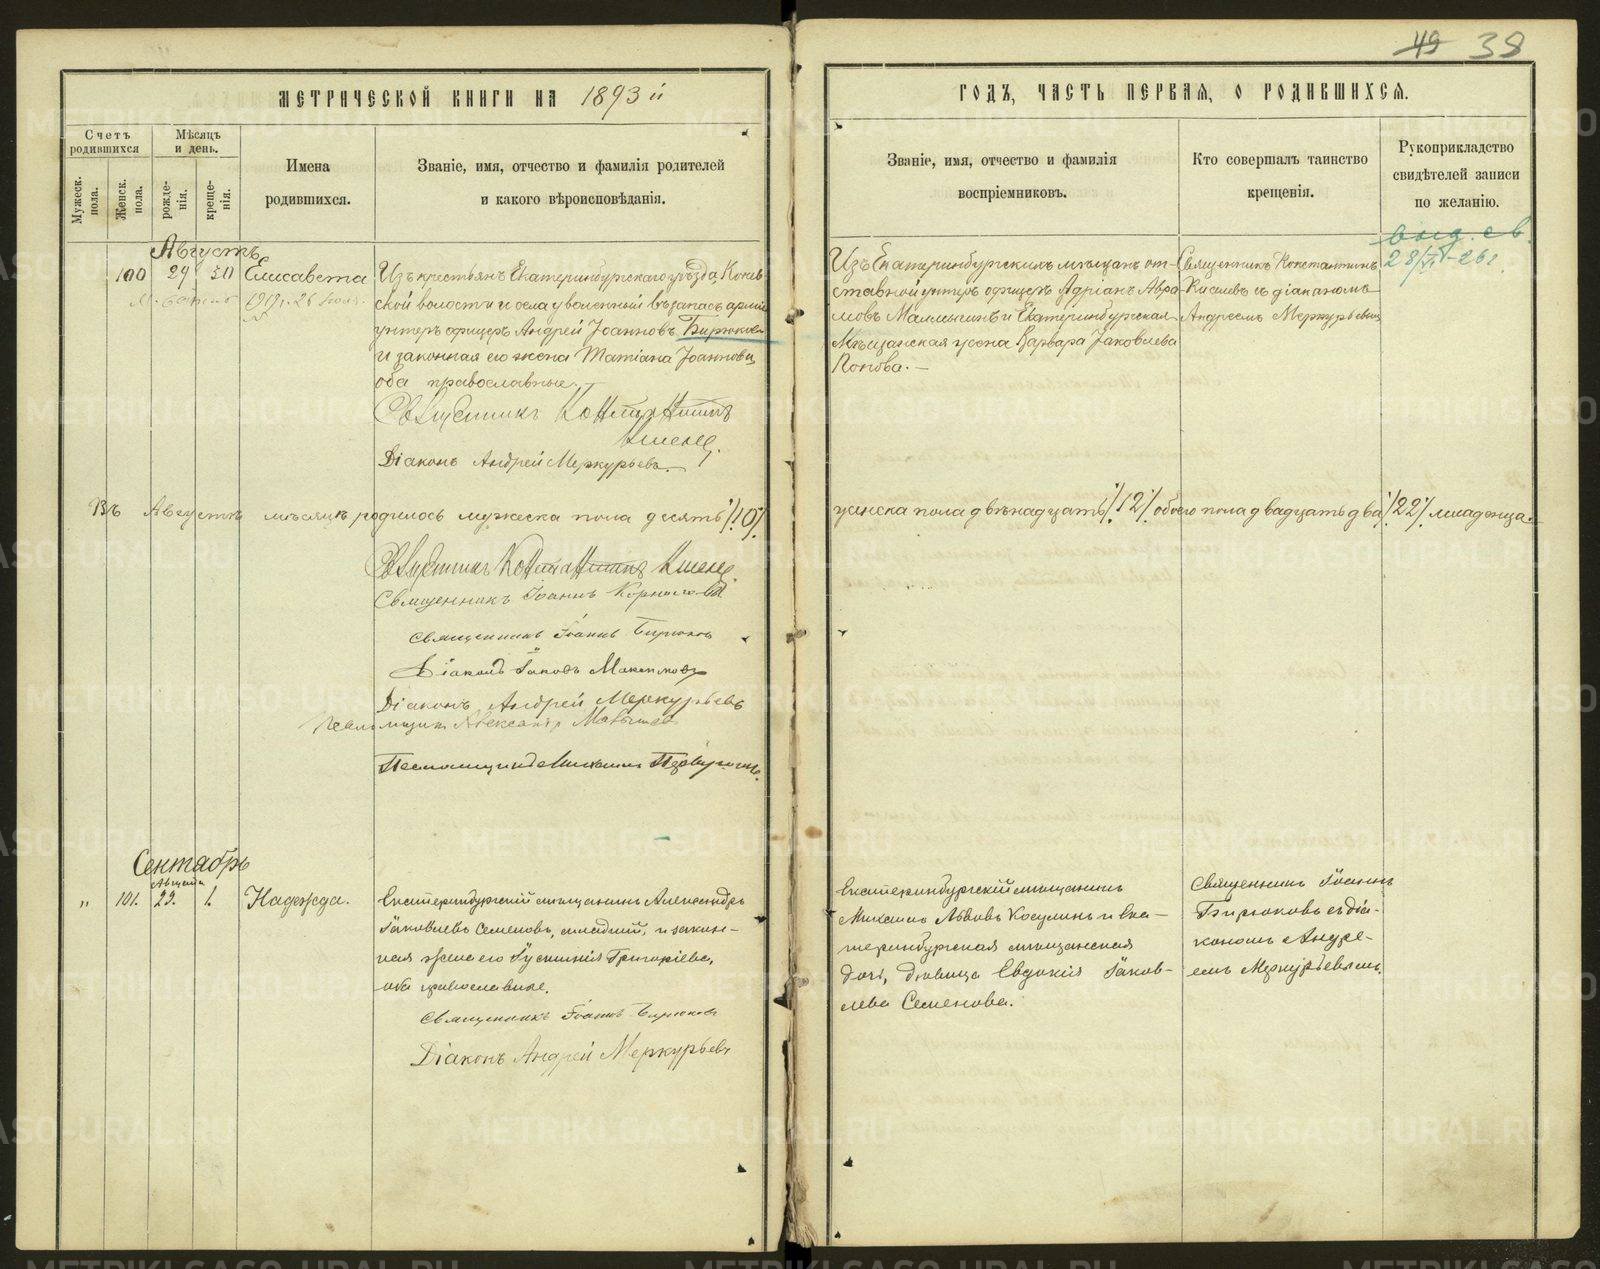 49 38
МЕТРИЧЕСКОЙ КНИГИ НА 1893 й
ГОДЪ, ЧАСТЬ ПЕРВАЯ, О РОДИВШИХСЯ.
Счетъ родившихся
Мѣсяцъ и день.
Мужеск. пола.
Женск. пола.
рожде-
нія.
креще-
нія.
Имена
родившихся.
Званіе, имя, отчество и фамилія родителей
и какого вѣроисповѣданія.
Званіе, имя, отчество и фамилія
воспріемниковъ.
Кто совершалъ таинство
крещенія.
Рукоприкладство
свидѣтелей записи
по желанію.
Августъ
100 29 30 Елисавета
Изъ крестьянъ Екатеринбургскаго уѣзда,
ской волости и села уволенный въ запасъ арміи
унтеръ офицеръ Андрей Іоанновъ Бирюковъ
и законная его жена Татіана Іоаннова,
оба православные.
Священникъ Константинъ
Діаконъ Андрей Меркурьевъ.
Изъ Екатеринбургскихъ мѣщанъ от-
ставной унтеръ офицеръ Адріанъ Авра-
мовъ и Екатеринбургская
Мѣщанская жена Варвара Іаковлева
Попова.
Священникъ Константинъ
съ діакономъ
Андреемъ Меркурьевымъ
выд. св.
28/VI-26г.
Въ Августѣ мѣсяцѣ родилось мужеска пола десять /10/
женска пола двѣнадцать /12/ обоего пола двадцать два /22/ младенца.
Священникъ Константинъ
Священникъ Іоаннъ
Священникъ Іоаннъ Бирюковъ
Діаконъ Іаковъ Максимовъ
Діаконъ Андрей Меркурьевъ
Псаломщикъ Александръ
Псаломщикъ Михаилъ
Сентябрь
Августа
" 101. 29. 1. Надежда.
Екатеринбургскій мѣщанинъ Александръ
Іаковлевъ Семеновъ, младшій, и закон-
ная жена его Іустинія Григоріева,
оба православные.
Священникъ Іоаннъ Бирюковъ
Діаконъ Андрей Меркурьевъ
Екатеринбургскій мѣщанинъ
Михаилъ Львовъ Косулинъ и Ека-
теринбургская мѣщанская
дочь, дѣвица Евдокія Іаков-
лева Семенова.
Священникъ Іоаннъ
Бирюковъ съ діа-
кономъ Андре-
емъ Меркурьевымъ.
METRIKI.GASO-URAL.RU